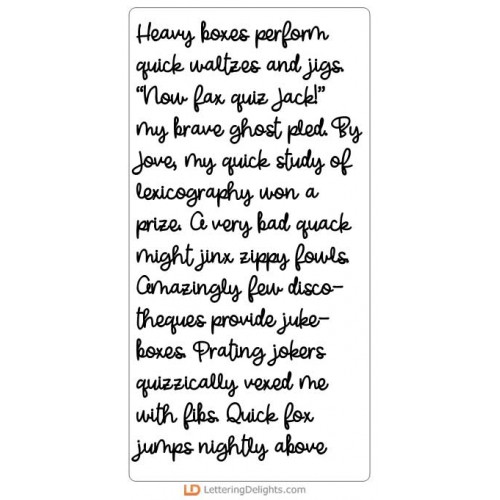 Heavy boxes perform
quick waltzes and jigs.
“Now fax quiz Jack!”
my brave ghost pled. By
Jove, my quick study of
lexicography won a
prize. A very bad quack
might jinx zippy fowls.
Amazingly few disco-
theques provide juke-
boxes. Prating jokers
quizzically vexed me
with fibs. Quick fox
jumps nightly above
LD LetteringDelights.com